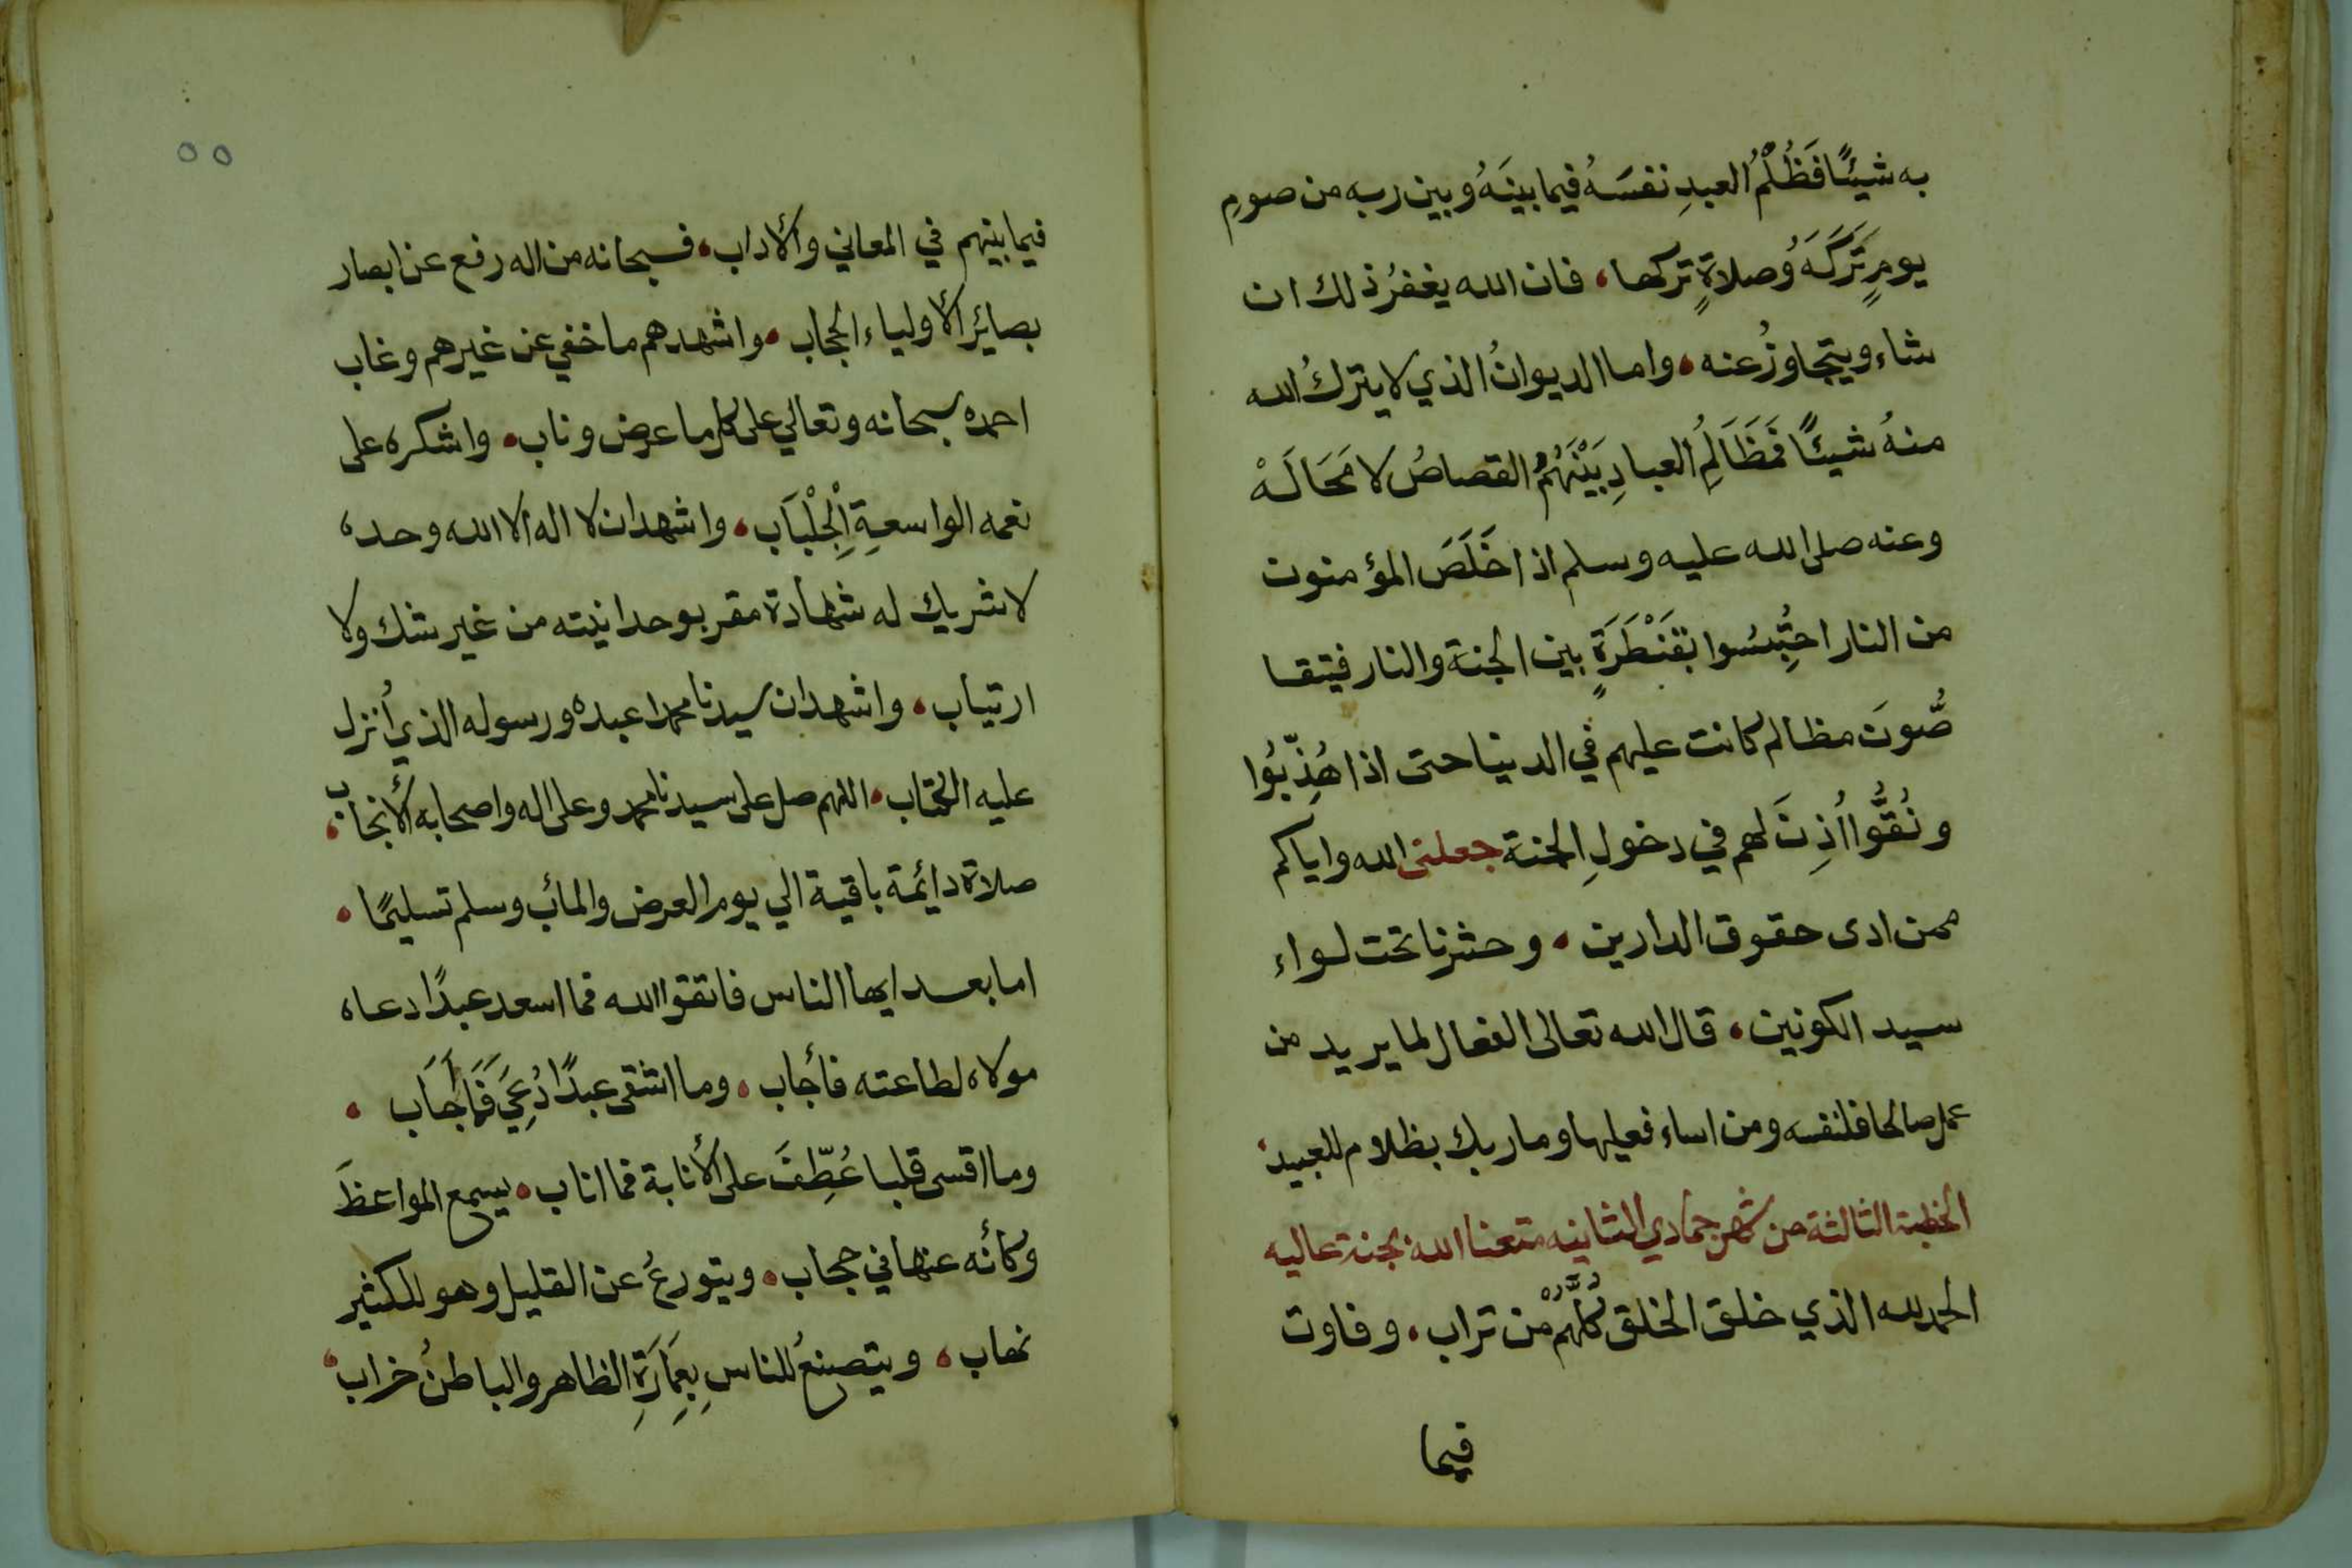 به شيئًا فَظُلْمُ العبدِ نفسَهُ فيما بينَهُ وبين ربه من صومِ
يومٍ تَرَكَهُ وصلاةٍ تركها، فان الله يغفرُ ذلك ان
شاء ويتجاوزُ عنه، واما الديوانُ الذي لا يتركُ الله
منهُ شيئًا فَمَظَالِمُ العبادِ بَيْنَهُمُ القصاصُ لا مَحَالَهْ
وعنه صلى الله عليه وسلم اذا خَلَصَ المؤمنون
من النار احتُبِسُوا بقَنْطَرَةٍ بين الجنة والنار فيتقا
صُّونَ مظالم كانت عليهم في الدنيا حتى اذا هُذِّبُوا
ونُقُّوا اُذِنَ لهم في دخولِ الجنة جعلنى الله واياكم
ممن ادى حقوق الدارين، وحشرنا تحت لواء
سيد الكونين، قال الله تعالى الفعال لما يريد من
عمل صالحا فلنفسه ومن اساء فعليها وما ربك بظلام للعبيد،
الخطبة الثالثة من شهر جمادي الثانيه متعنا الله بجنة عاليه
الحمد لله الذي خلق الخلق كُلَّهُمْ من تراب، وفاوت
فيما
٥٥
فيما بينهم في المعاني والأداب، فسبحانه من اله رفع عن ابصار
بصائر الأولياء الحجاب، واشهدهم ما خفي عن غيرهم وغاب
احمده سبحانه وتعالي على كل ما عرض وناب، واشكره على
نعمه الواسعةِ الْجِلْبَاب، واشهد ان لا اله الا الله وحده
لا شريك له شهادة مقر بوحدانيته من غير شك ولا
ارتياب، واشهد ان سيدنا محمدا عبده ورسوله الذي أُنزل
عليه الكتاب، اللهم صل على سيدنا محمد وعلى اله واصحابه الأنجاب،
صلاة دائمة باقية الي يوم العرض والمأب وسلم تسليمًا،
اما بعد ايها الناس فاتقوا الله فما اسعد عبدًا دعاه
مولاه لطاعته فأجاب، وما اشقى عبدًا دُعِيَ فَمَا أَجَاب،
وما اقسى قلبا عُطِّفَ على الأنابة فما اناب، يسمع المواعظَ
وكأنه عنها في حجاب، ويتورعُ عن القليل وهو للكثير
نهاب، ويتصنعُ للناسِ بِعِمَارَةِ الظاهر والباطنُ خراب،